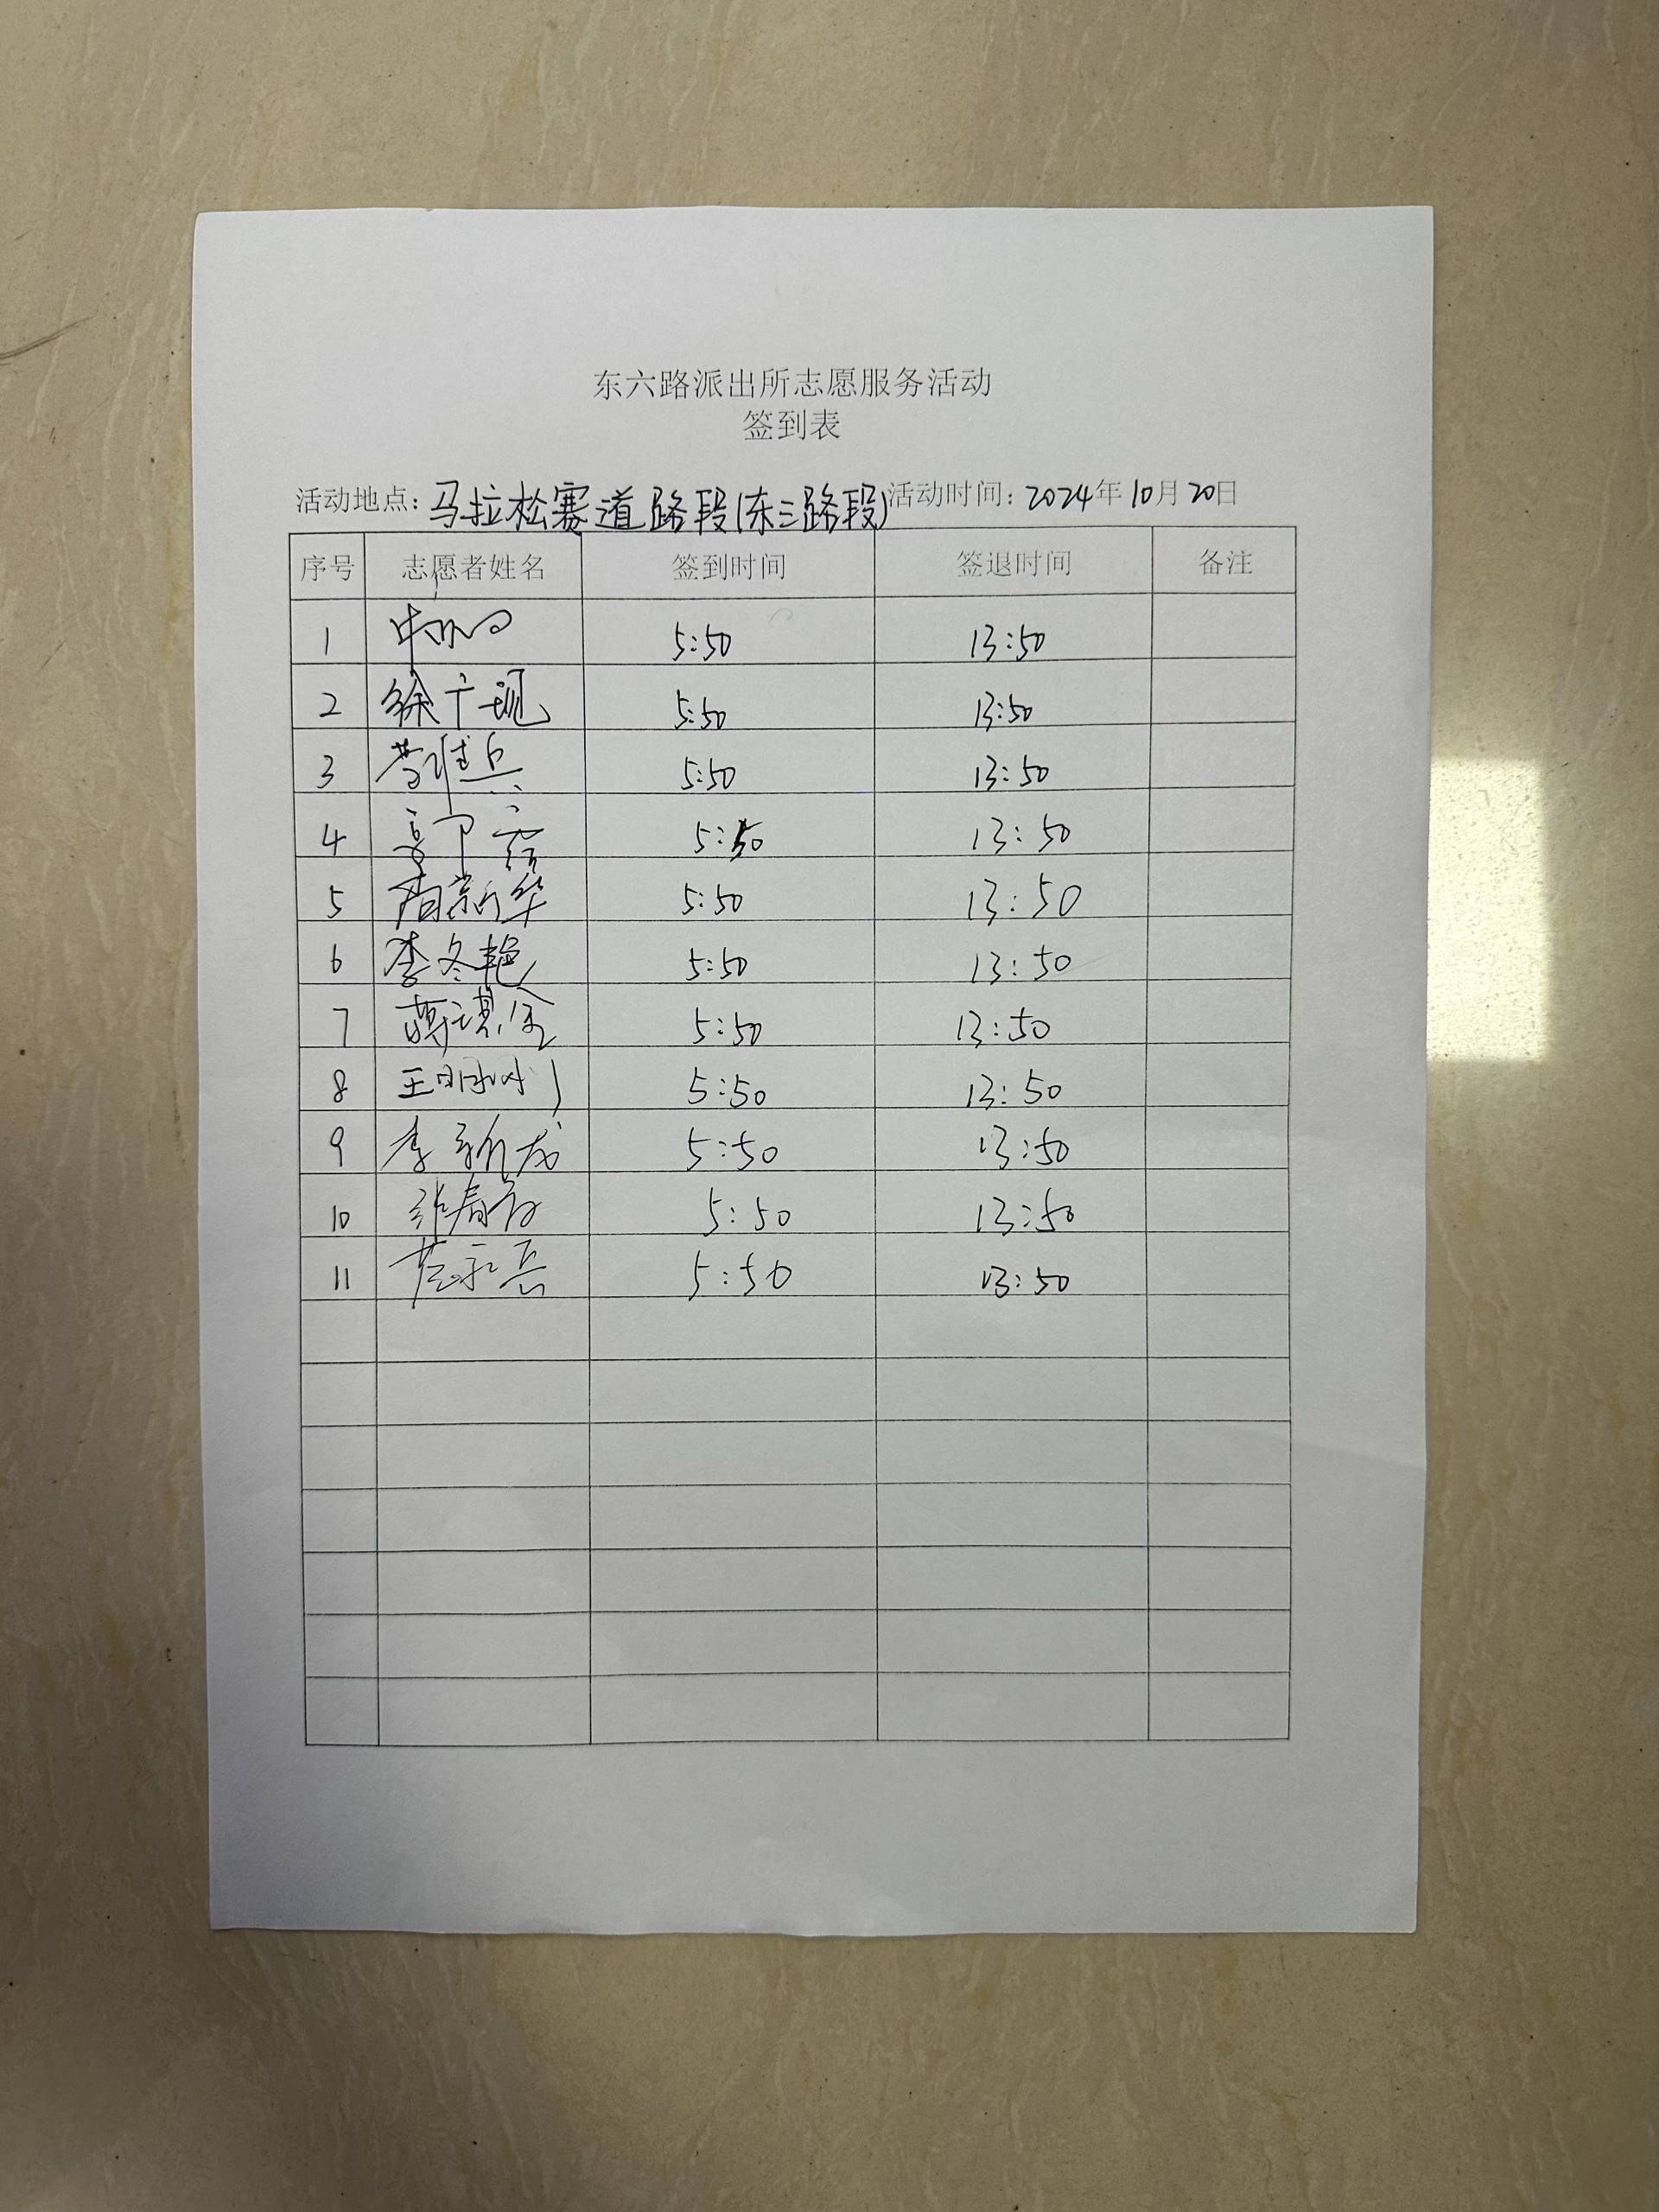 东六路派出所志愿服务活动
签到表
活动地点：马拉松赛道路段(东三路段)活动时间：2024年10月20日
序号 志愿者姓名 签到时间 签退时间 备注
1 5:50 13:50
2 徐 5:50 13:50
3 5:50 13:50
4 5:50 13:50
5 新华 5:50 13:50
6 李冬艳 5:50 13:50
7 5:50 13:50
8 王明 5:50 13:50
9 李新成 5:50 13:50
10 张春 5:50 13:50
11 5:50 13:50